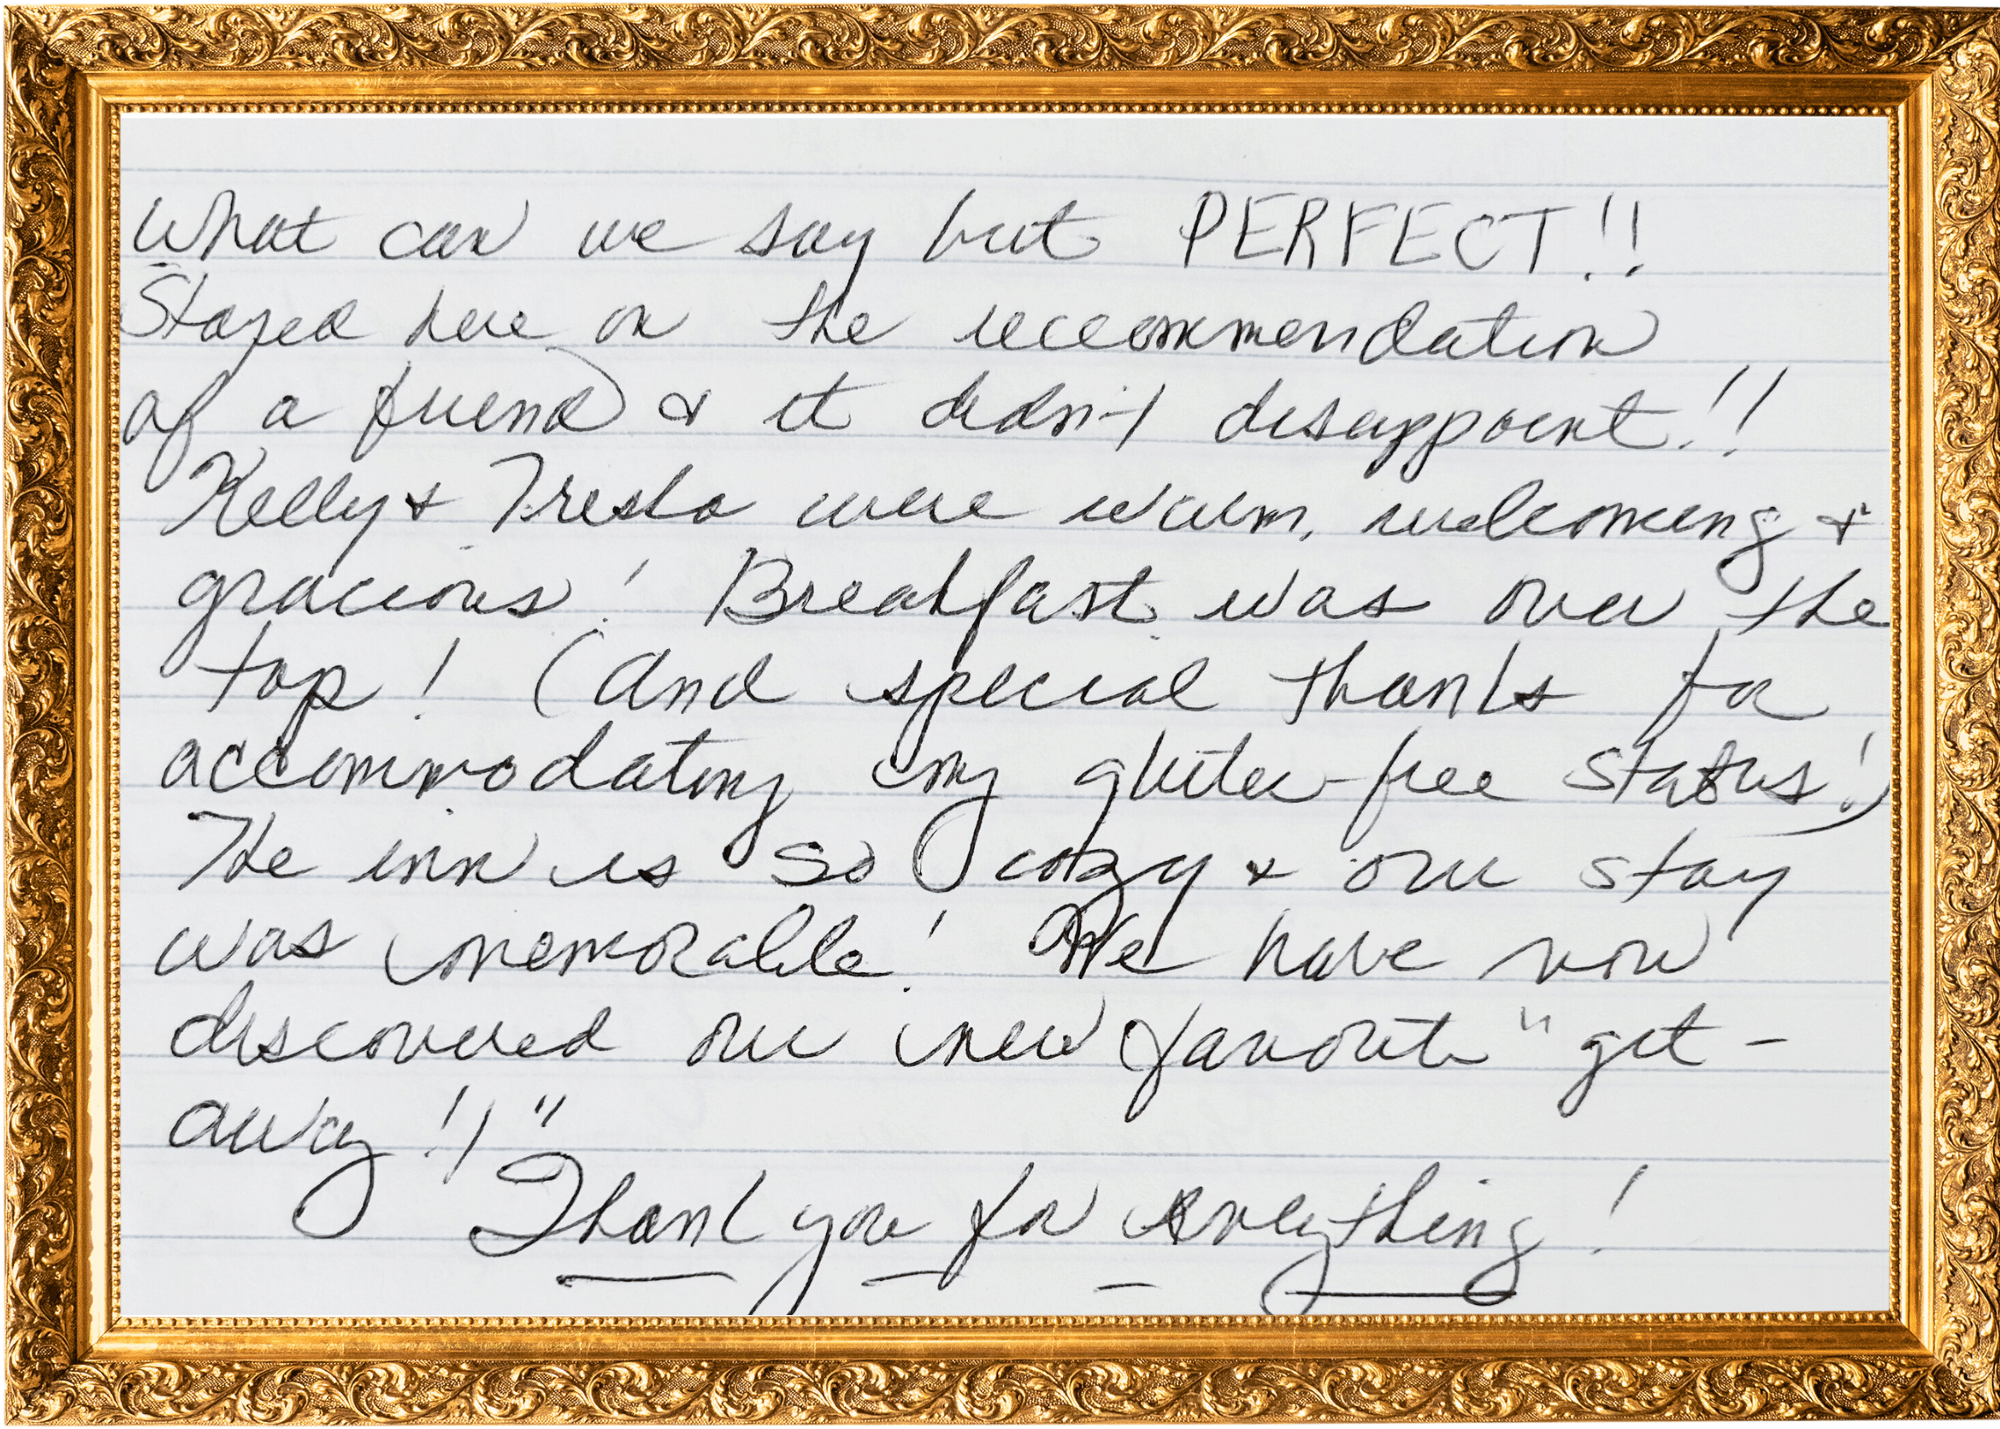 What can we say but PERFECT!!
Stayed here on the reccommendation
of a friend & it didn't disappoint!!
Kelly & Tresla were warm, welcoming &
gracious! Breakfast was over the
top! (And special thanks for
accommodating my gluten-free status!)
The inn is so cozy & our stay
was memorable! We have now
discovered our new favorite "get-
away!!"
Thank you for everything!